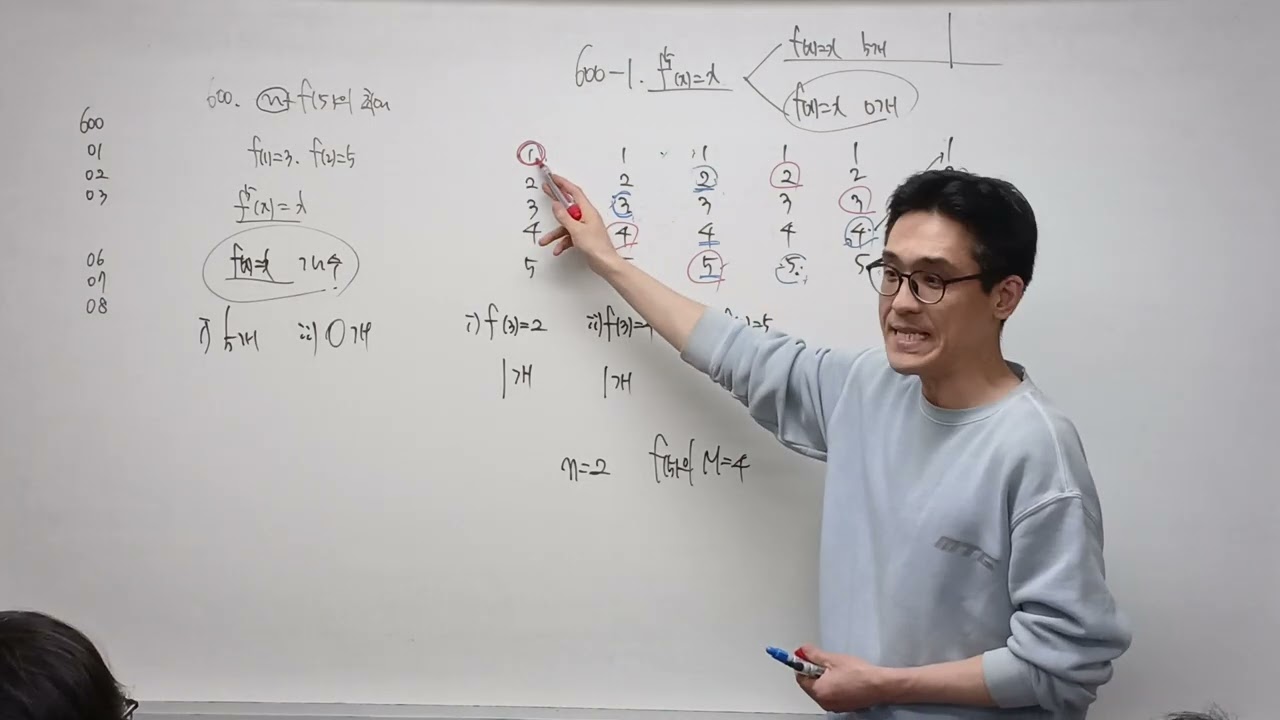 600
01
02
03
06
07
08
600. n + f(5)의 최댓
f(1)=3. f(2)=5
f⁵(x)=x
f(x)=x 개수
i) 5개 ii) 0개
600-1. f⁵(x)=x
f(x)=x 5개
f(x)=x 0개
1 1 1 1 1 1
2 2 2 2 2
3 3 3 3 3
4 4 4 4 4
5 5 5 5
i) f(3)=2 ii) f(3)=
=5
1개 1개
n=2 f(5)의 M=4
MTC